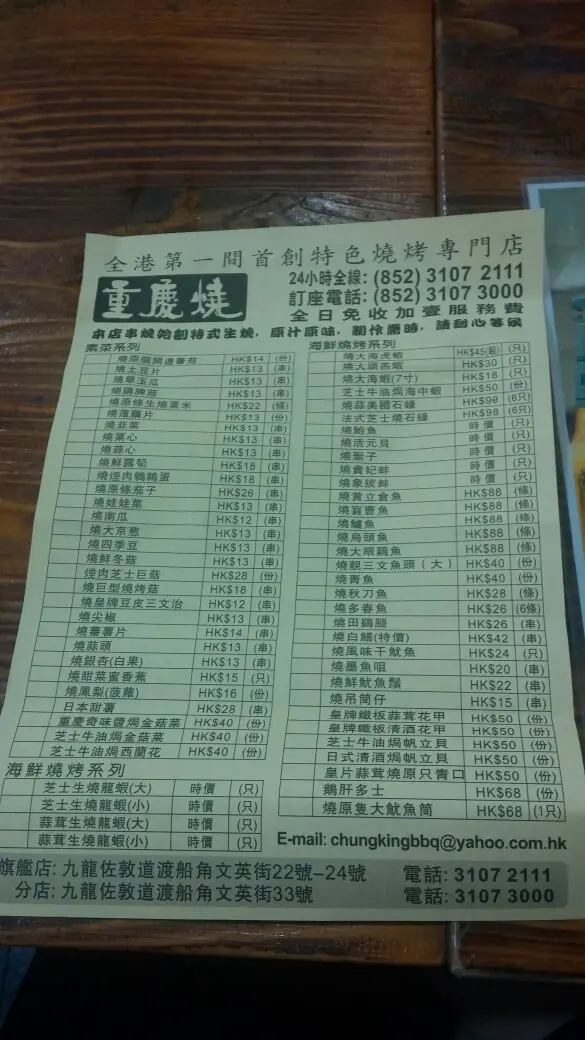 全港第一間首創特色燒烤專門店
重慶燒
24小時全線: (852) 3107 2111
訂座電話: (852) 3107 3000
全日免收加壹服務費
本店串燒始創特式生燒, 原汁原味, 制作需時, 請耐心等候
素菜系列
燒原個開邊蕃茄 HK$14 (份)
燒土豆片 HK$13 (串)
燒翠玉瓜 HK$13 (串)
燒鷄脾菇 HK$13 (串)
燒原條生燒粟米 HK$22 (條)
燒蓮藕片 HK$13 (份)
燒韭菜 HK$13 (串)
燒菜心 HK$13 (串)
燒蒜心 HK$13 (串)
燒鮮露筍 HK$18 (串)
燒煙肉鵪鶉蛋 HK$18 (串)
燒原條茄子 HK$26 (串)
燒娃娃菜 HK$13 (串)
燒南瓜 HK$12 (串)
燒大京葱 HK$13 (串)
燒四季豆 HK$13 (串)
燒鮮冬菇 HK$13 (串)
煙肉芝士巨菇 HK$28 (份)
燒巨型燒烤菇 HK$18 (串)
燒皇牌豆皮三文治 HK$12 (串)
燒尖椒 HK$13 (串)
燒薯薯片 HK$14 (串)
燒蒜頭 HK$13 (串)
燒銀杏(白果) HK$13 (串)
燒甜菜蜜香蕉 HK$15 (只)
燒鳳梨(菠蘿) HK$16 (份)
日本甜薯 HK$28 (串)
重慶奇味醬焗金菇菜 HK$40 (份)
芝士牛油焗金菇菜 HK$40 (份)
芝士牛油焗西蘭花 HK$40 (份)
海鮮燒烤系列
芝士生燒龍蝦(大) 時價 (只)
芝士生燒龍蝦(小) 時價 (只)
蒜茸生燒龍蝦(大) 時價 (只)
蒜茸生燒龍蝦(小) 時價 (只)
海鮮燒烤系列
燒大海虎蝦 HK$45(起) (只)
燒大頭羔蝦 HK$30 (只)
燒大海蝦(7寸) HK$18 (只)
芝士牛油焗海中蝦 HK$50 (份)
燒蒜美國石蠔 HK$98 (6只)
法式芝士燒石蠔 HK$98 (6只)
燒鮑魚 時價 (只)
燒活元貝 時價 (只)
燒聖子 時價 (只)
燒貴妃蚌 時價 (只)
燒象拔蚌 時價 (只)
燒黃立倉魚 HK$88 (條)
燒盲曹魚 HK$88 (條)
燒鱸魚 HK$88 (條)
燒烏頭魚 HK$88 (條)
燒大眼鷄魚 HK$88 (條)
燒靚三文魚頭 (大) HK$40 (份)
燒青魚 HK$40 (份)
燒秋刀魚 HK$28 (條)
燒多春魚 HK$26 (6條)
燒田鷄腿 HK$26 (串)
燒白鱔(特價) HK$42 (串)
燒風味干魷魚 HK$24 (只)
燒墨魚咀 HK$20 (串)
燒鮮魷魚鬚 HK$22 (串)
燒吊筒仔 HK$15 (串)
皇牌鐵板蒜茸花甲 HK$50 (份)
皇牌鐵板清酒花甲 HK$50 (份)
芝士牛油焗帆立貝 HK$50 (份)
日式清酒焗帆立貝 HK$50 (份)
皇片蒜茸燒原只青口 HK$50 (份)
鵝肝多士 HK$68 (份)
燒原隻大魷魚筒 HK$68 (1只)
E-mail: chungkingbbq@yahoo.com.hk
旗艦店: 九龍佐敦道渡船角文英街22號-24號 電話: 3107 2111
分店: 九龍佐敦道渡船角文英街33號 電話: 3107 3000